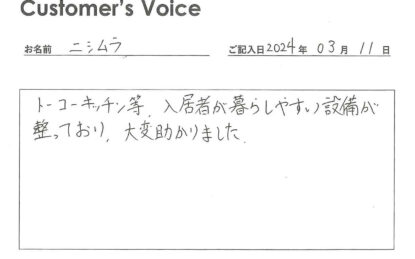 Customer's Voice
お名前 ニシムラ ご記入日2024年 03月 11日
トーコーキッチン等、入居者が暮らしやすい設備が
整っており、大変助かりました。